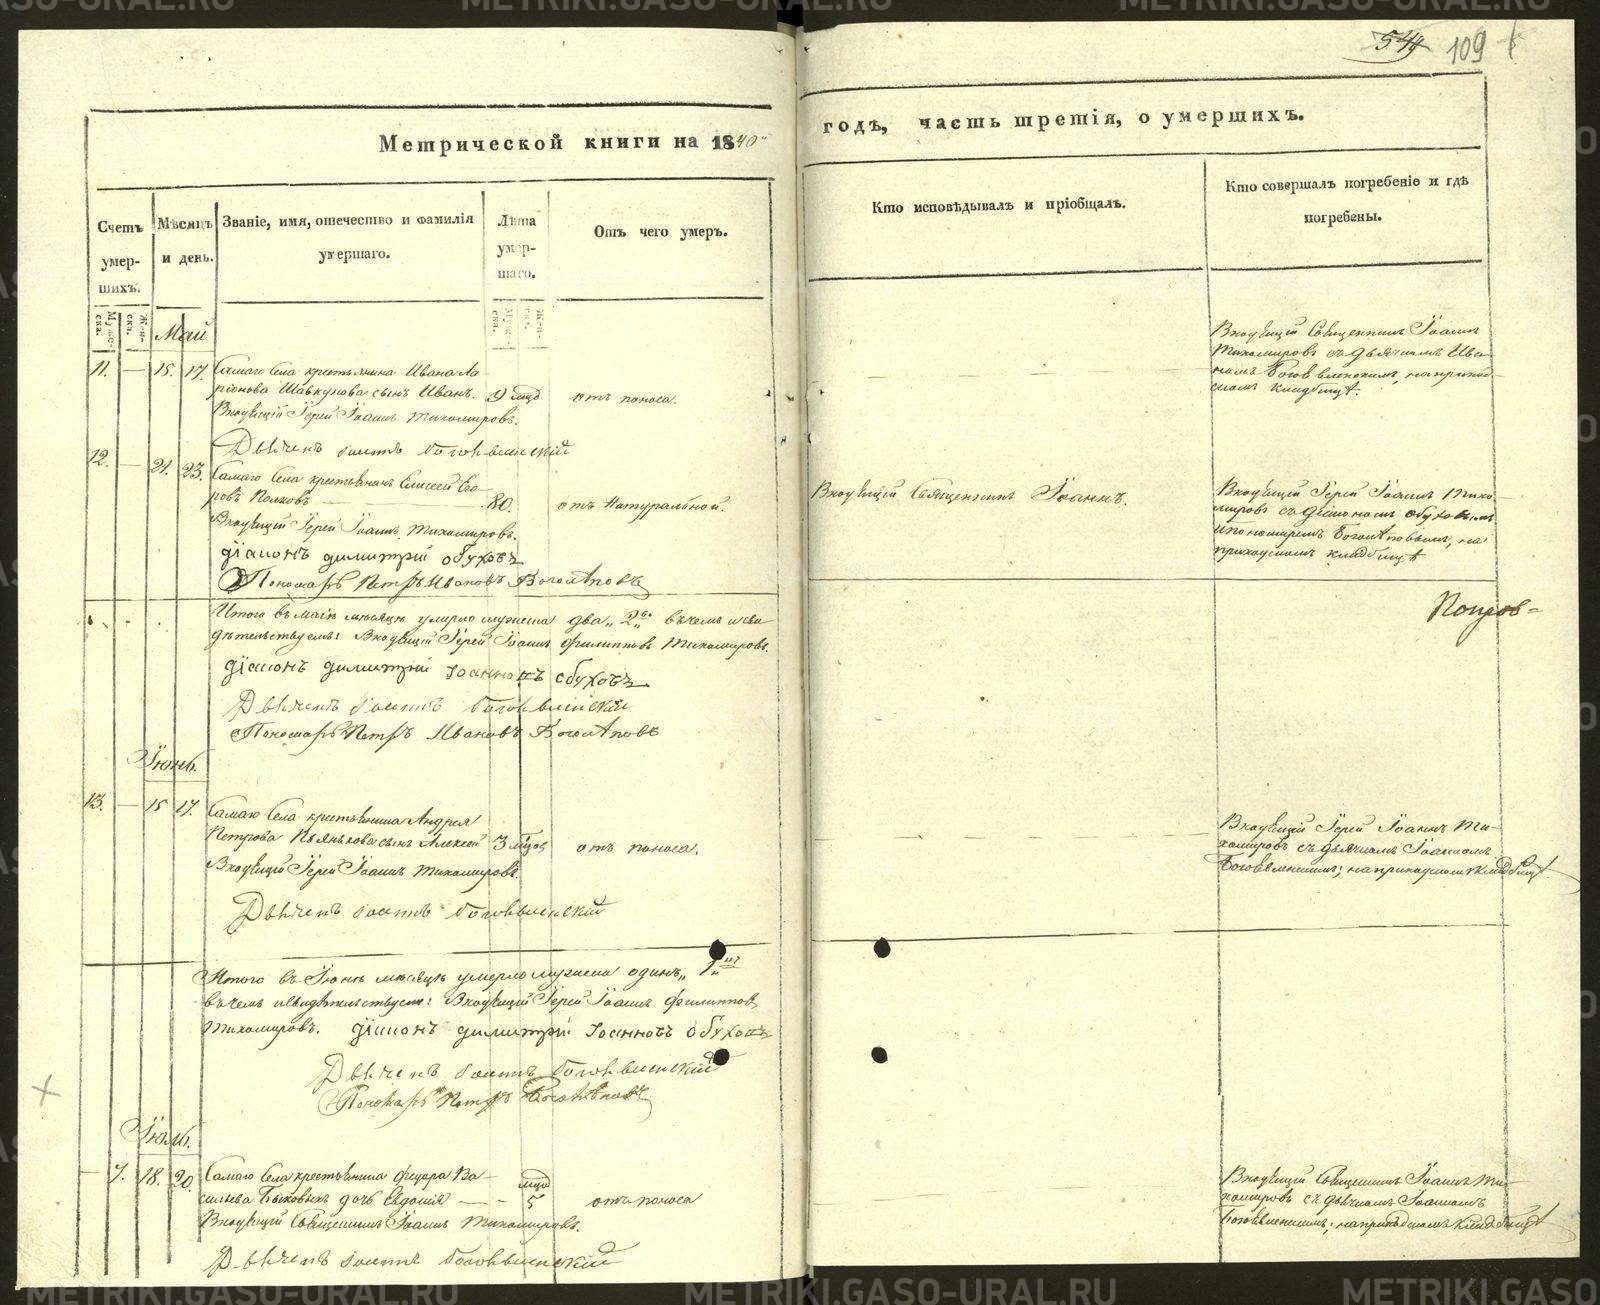 METRIKI.GASO-URAL.RU
METRIKI.GASO-URAL.RU
544 109
Метрической книги на 1840
годъ, часть третія, о умершихъ.
Счетъ умер-шихъ.
Мужес-ка.
Жен-ска.
Мѣсяцъ и день.
Званіе, имя, отечество и фамилія умершаго.
Лѣта умер-шаго.
Муж-ска.
Жен-ска.
Отъ чего умеръ.
Кто исповѣдывалъ и пріобщалъ.
Кто совершалъ погребеніе и гдѣ погребены.
Май
11. — 15. 17. Самаго Села крестьянина Ивана Ла-
ріонова Шавкунова сынъ Иванъ. 9 мцд отъ поноса.
Входящій Іерей Іоаннъ Тихомировъ.
Дьячекъ Іоаннъ Богоявленскій
Входящій Священникъ Іоаннъ
Тихомировъ съ дьячкомъ Ива-
номъ Богоявленскимъ, на приход-
скомъ кладбищѣ.
12. — 21. 23. Самаго Села крестьянинъ Елисей Его-
ровъ 80. отъ Натуральной.
Входящій Іерей Іоаннъ Тихомировъ.
Діаконъ Димитрій Обуховъ
Пономарь Петръ Ивановъ Боголѣповъ
Входящій Священникъ Іоаннъ.
Входящій Іерей Іоаннъ Тихо-
мировъ съ діакономъ Обуховымъ
и пономаремъ Боголѣповымъ, на
приходскомъ кладбищѣ
Итого въ маіѣ мѣсяцѣ умерло мужеска два „2„ въ чемъ и сви-
дѣтельствуемъ: Входящій Іерей Іоаннъ Филипповъ Тихомировъ.
Діаконъ Димитрій Іоанновъ Обуховъ
Дьячекъ Іоаннъ Богоявленскій
Пономарь Петръ Ивановъ Боголѣповъ
Іюнь.
13. — 15 17. Самаго Села крестьянина Андрея
Петрова Пьянкова сынъ Алексѣй 3 мцов отъ поноса.
Входящій Іерей Іоаннъ Тихомировъ.
Дьячекъ Іоаннъ Богоявленскій
Входящій Іерей Іоаннъ Ти-
хомировъ съ дьячкомъ Іоанномъ
Богоявленскимъ; на приходскомъ кладбищѣ
Итого въ Іюнѣ мѣсяцѣ умерло мужеска одинъ „1„
въ чемъ и свидѣтельствуемъ: Входящій Іерей Іоаннъ Филипповъ
Тихомировъ. Діаконъ Димитрій Іоанновъ Обуховъ
Дьячекъ Іоаннъ Богоявленскій
Пономарь Петръ Боголѣповъ
Іюль.
— 7. 18. 20. Самаго Села крестьянина Федора Ва-
сильева Быковыхъ дочь Евдокія — мцд 5 отъ поноса
Входящій Священникъ Іоаннъ Тихомировъ.
Дьячекъ Іоаннъ Богоявленскій
Входящій Священникъ Іоаннъ Ти-
хомировъ съ дьячкомъ Іоанномъ
Богоявленскимъ; на приходскомъ кладбищѣ
METRIKI.GASO-URAL.RU
METRIKI.GASO-URAL.RU